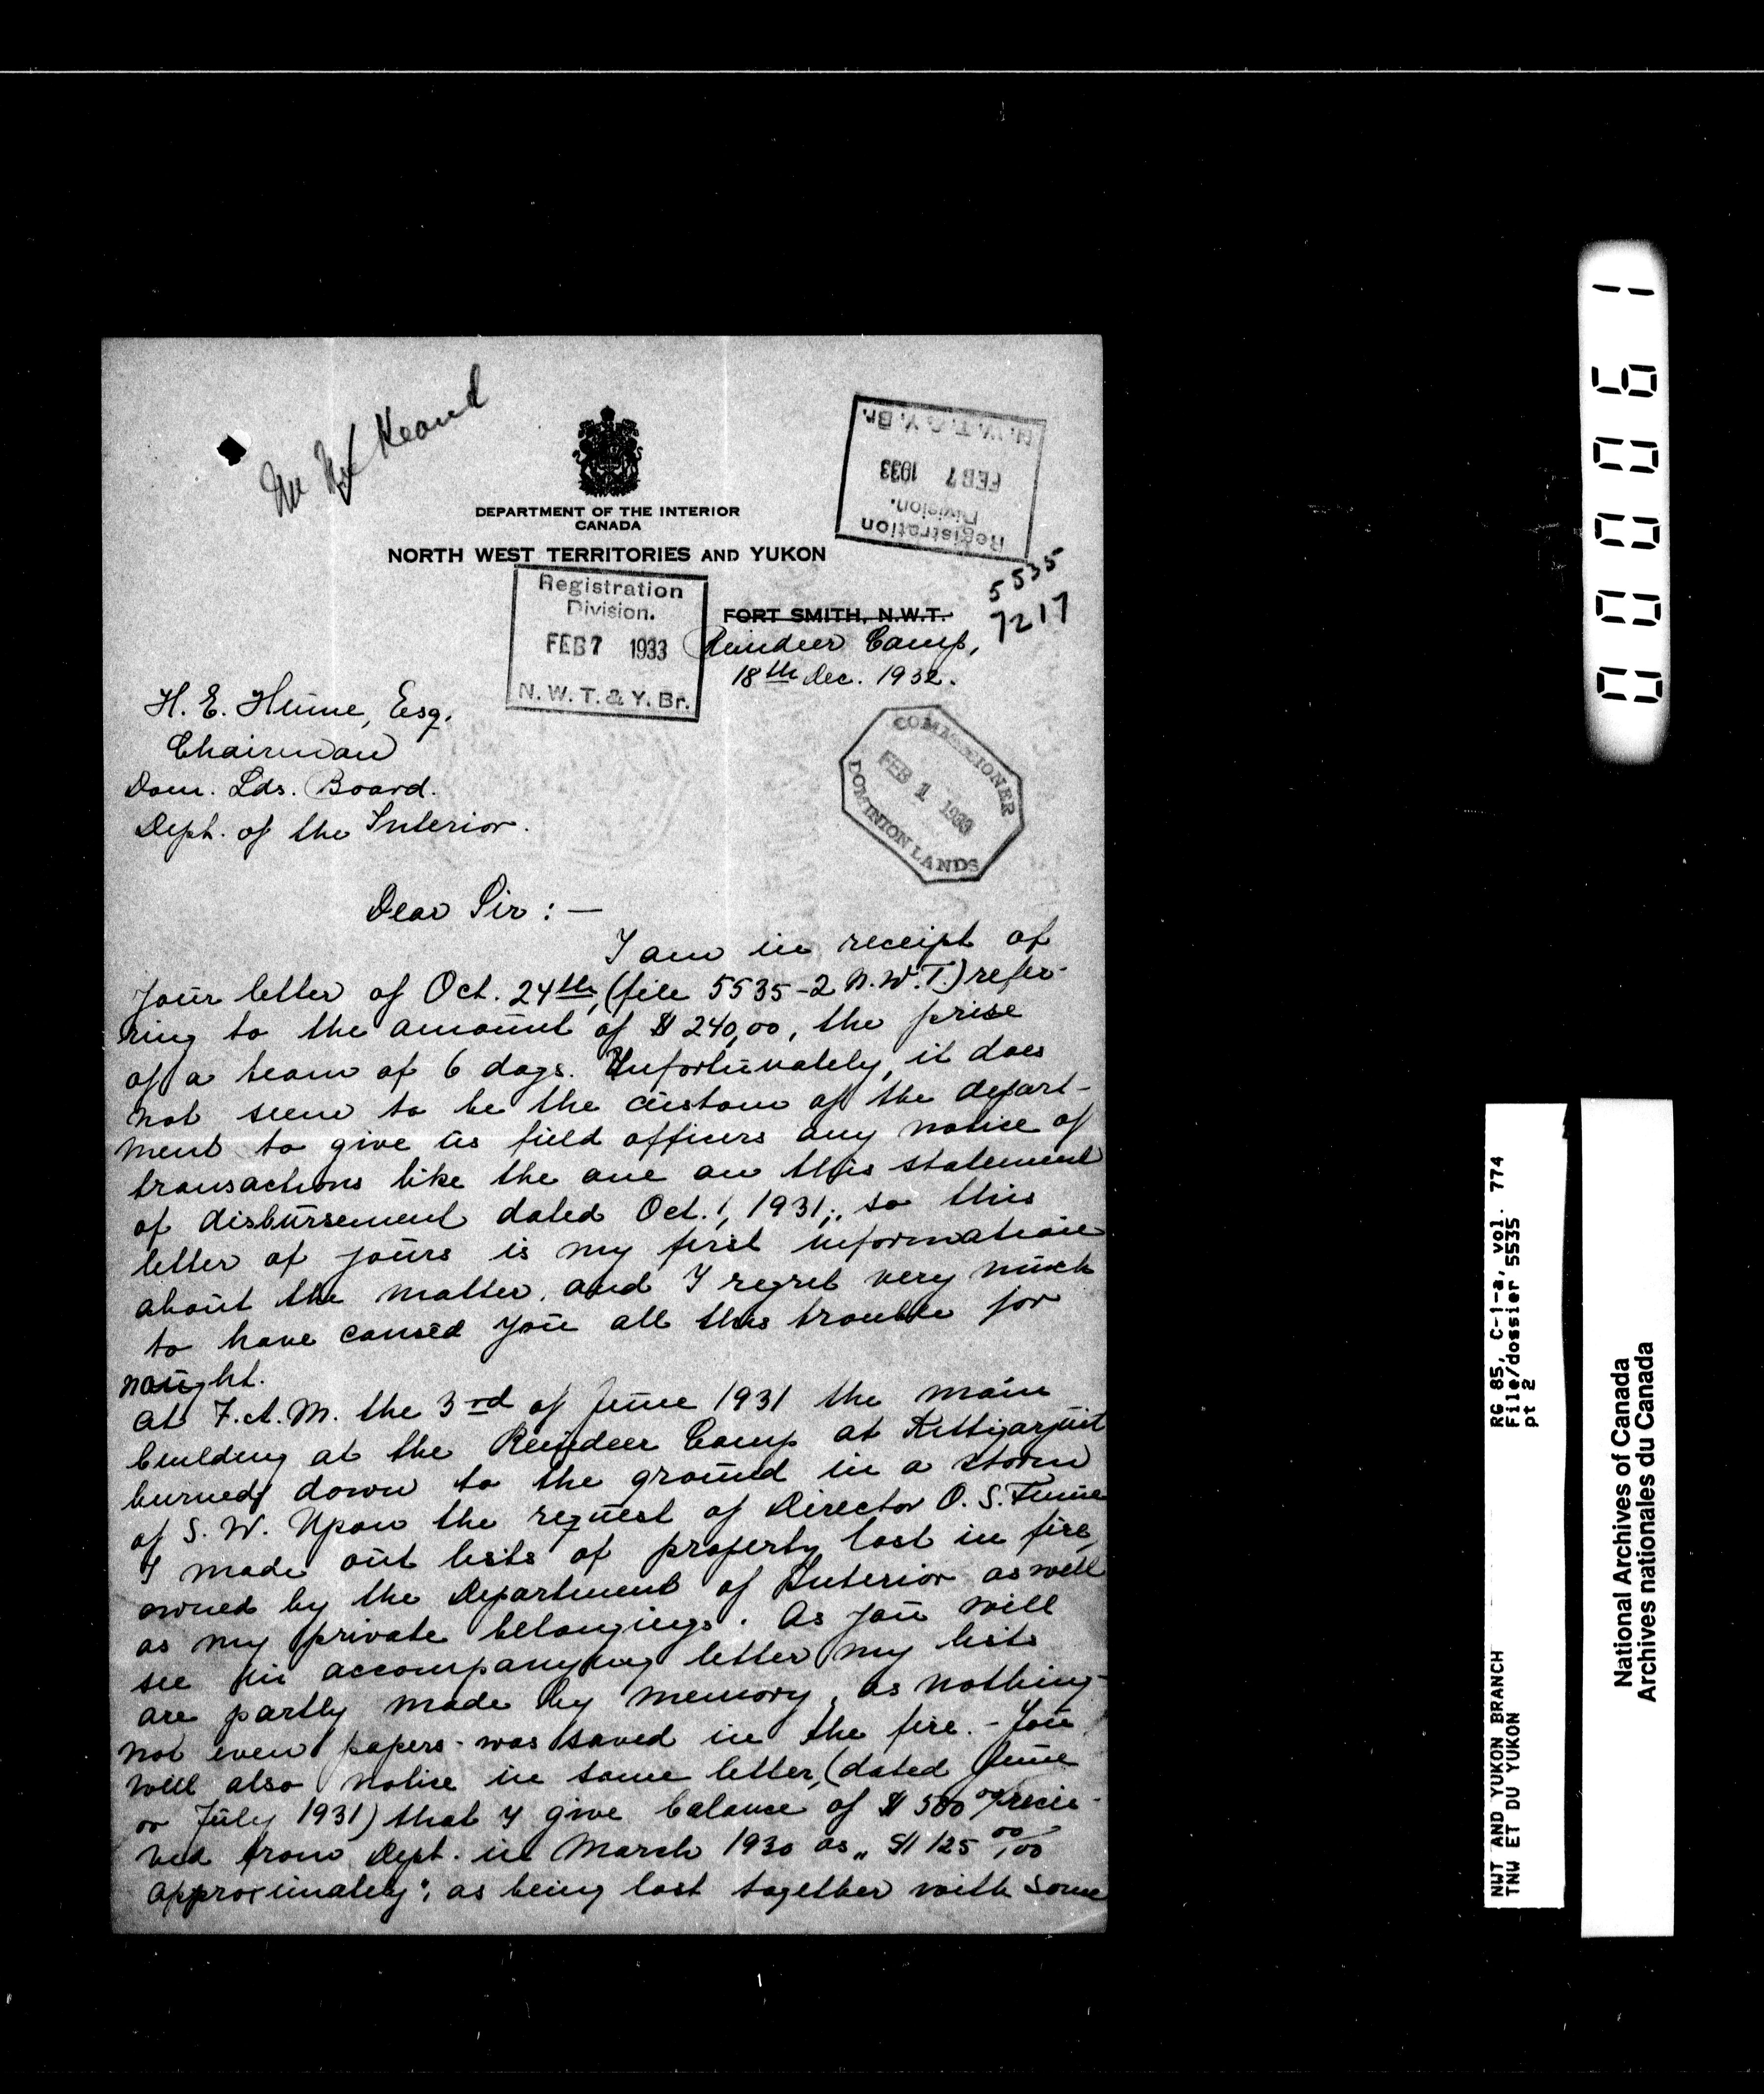 Mr McKeand
DEPARTMENT OF THE INTERIOR
CANADA
NORTH WEST TERRITORIES AND YUKON
Registration
Division.
FEB 7 1933
N. W. T. & Y. Br.
Registration
Division.
FEB 7 1933
N. W. T. & Y. Br.
5535
7217
FORT SMITH, N.W.T.
Reindeer Camp,
18th Dec. 1932.
COMMISSIONER
FEB 1 1933
DOMINION LANDS
H. E. Hume, Esq.
Chairman
Dom. Lds. Board.
Dept. of the Interior.
Dear Sir : —
I am in receipt of
your letter of Oct. 24th, (file 5535-2 N.W.T.) refer-
ring to the amount of $ 240,00, the prise
of a team of 6 dogs. Unfortunately, it does
not seem to be the custom of the depart-
ment to give us field officers any notice of
transactions like the one on this statement
of disbursement dated Oct. 1, 1931;, so this
letter of yours is my first information
about the matter, and I regret very much
to have caused you all this trouble for
naught.
At 7.A.M. the 3rd of June 1931 the main
building at the Reindeer Camp at Kittigarjuit
burned down to the ground in a storm
of S. W. Upon the request of Director O. S. Finnie
I made out lists of property lost in fire,
owned by the Department of Interior as well
as my private belongings. As you will
see in accompanying letter my lists
are partly made by memory, as nothing -
not even papers - was saved in the fire. - You
will also notice in same letter, (dated June
or July 1931) that I give balance of $ 500 00/00 recie-
ved from Dept. in March 1930 as „ $ 125 00/00
approximately", as being lost together with some
0000061
RG 85, C-1-a, vol. 774
File/dossier 5535
pt 2
NWT AND YUKON BRANCH
TNW ET DU YUKON
National Archives of Canada
Archives nationales du Canada